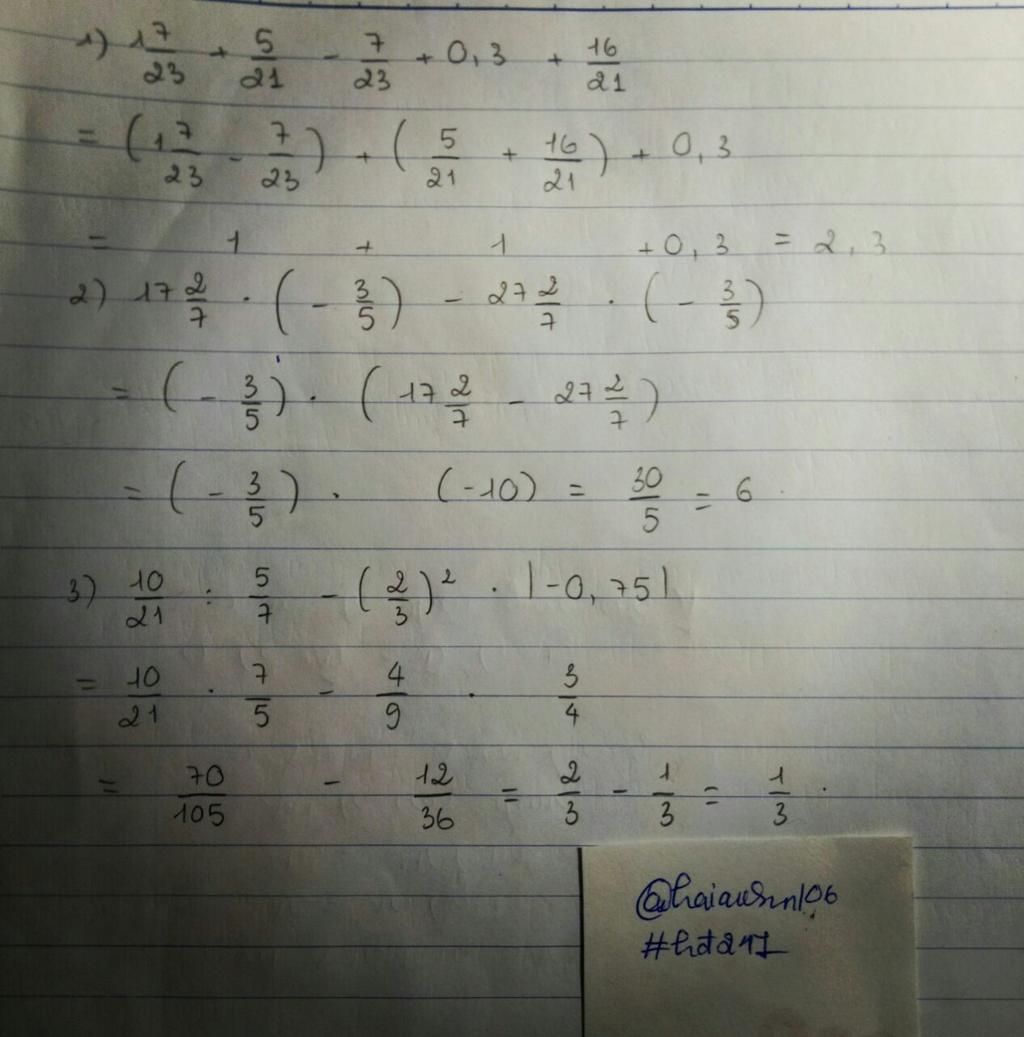 1) 1 7/23 + 5/21 - 7/23 + 0,3 + 16/21
= (1 7/23 - 7/23) + (5/21 + 16/21) + 0,3
= 1 + 1 + 0,3 = 2,3
2) 17 2/7 · (- 3/5) - 27 2/7 · (- 3/5)
= (- 3/5) · (17 2/7 - 27 2/7)
= (- 3/5) · (-10) = 30/5 = 6
3) 10/21 : 5/7 - (2/3)² · |-0,75|
= 10/21 · 7/5 - 4/9 · 3/4
= 70/105 - 12/36 = 2/3 - 1/3 = 1/3 .